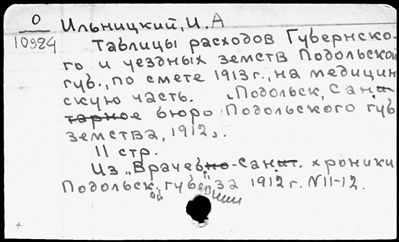 О
10984
Ильницкий, И. А
Таблицы расходов Губернско-
го и уездных земств Подольской
губ., по смете 1913 г., на медицин
скую часть. Подольск, Санитарное
бюро Подольского губ
земства, 1912.
11 стр.
Из „Врачебно-Санит. хроники
Подольской губернии" за 1912 г. N11-12.